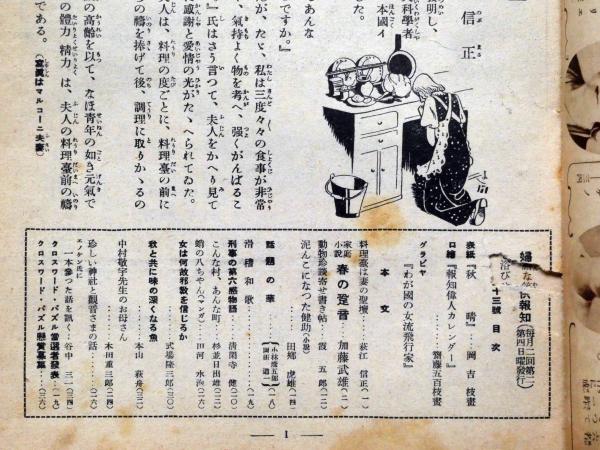 信正
のぶ まる
説明し、
科學者
本國イ
あんな
ですか。』
が、たゞ、私は三度々々の食事が非常
、氣持よく物を考へ、强くがんばるこ
』氏はさう言つて、夫人をかへり見て
感謝と愛情の光がたゝへられてゐた。
夫人は、料理の度ごとに、料理臺の前に
の禱を捧げて後、調理に取りかゝるの
の高齡を以て、なほ青年の如き元氣で
の體力 精力 は、夫人の料理臺前の禱
である。 (寫眞はマルコーニ夫妻)
報知 (每月二回第二 第四日曜發行)
十三號 目次
表紙『秋 晴』… 岡 吉 枝 畫
口繪『報知偉人カレンダー』
… 齋藤五百枝畫
グラビヤ
『わが國の女流飛行家』
本 文
料理臺は妻の聖壇… 萩江 信正…(一)
家庭小說 春の跫音… 加藤 武雄…(二)
動物珍談寄せ書き帖… 霞 五郎…(一二)
泥んこになつた健助(小說)
… 田鄕 虎雄…(一四)
話題の華
滑稽和歌…(一九)
刑事の第六感物語… 淸閑寺 健…(二〇)
こんな村、あんな町… 杉並日出雄…(二二)
蛸の八ちやん(マンガ)… 田河 水泡…(二六)
女は何故邪敎を信じるか
… 式場隆三郎…(三〇)
秋と共に味の深くなる魚
… 本山 萩舟…(三二)
中村敬宇先生のお母さん
… 本田重三郎…(二四)
珍しい神社と觀音さまの話…(二六)
エノケン氏に
一本參つた話を訊く… 谷中 三一…(三四)
クロスワード・パズル當選者發表…(一九)
クロスワード・パズル懸賞募集…(三六)
— 1 —